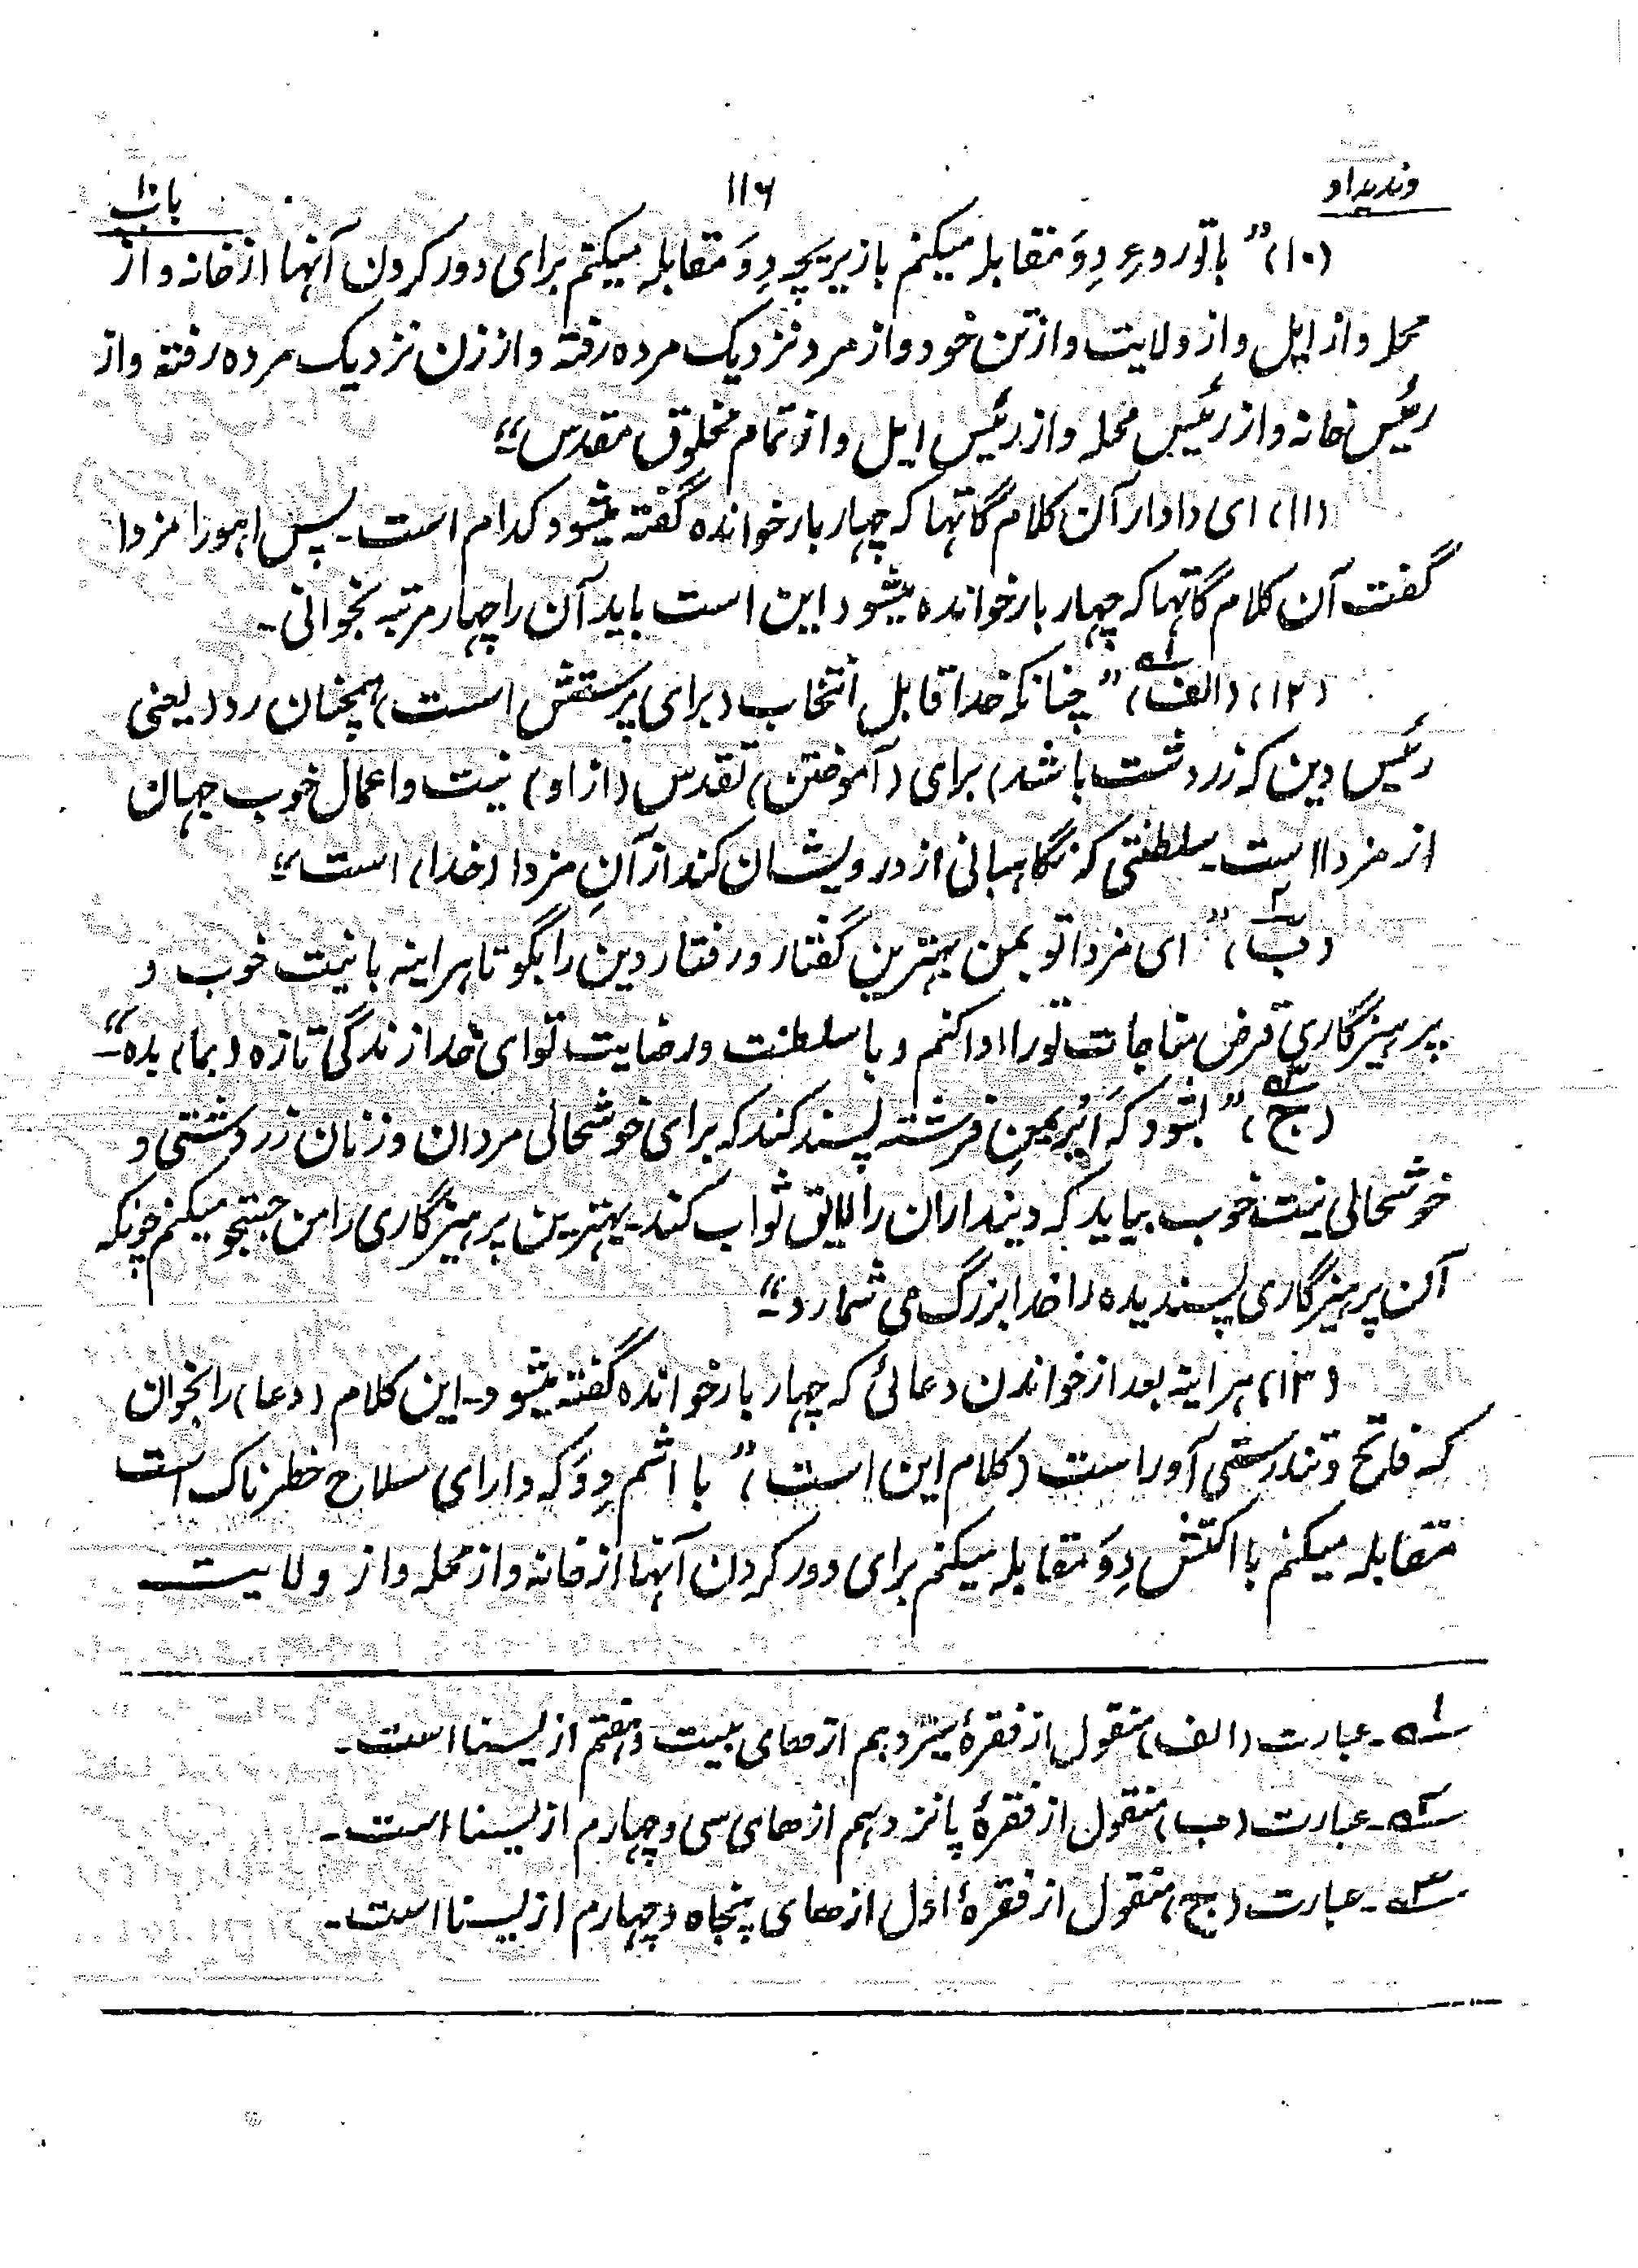 وندیداد
۱۱۶
باب ۱۰
(۱۰) ” با توروعِ دِوَ مقابله میکنم با زیریچه دِوَ مقابله میکنم برای دور کردن آنها از خانه و از
محله و از ایل و از ولایت و از تن خود و از مرد نزدیک مرده رفته و از زن نزدیک مرده رفته و از
رئیس خانه و از رئیس محله و از رئیس ایل و از تمام مخلوق مقدس“
(۱۱) ای دادار آن کلام گاتها که چهار بار خوانده گفته میشود کدام است ـ پس اهورا مزدا
گفت آن کلام گاتها که چهار بار خوانده میشود این است باید آن را چهار مرتبه بخوانی ـ
(۱۲) (الف)۱ ” چنانکه خدا قابل انتخاب (برای پرستش است) همچنان رد (یعنی
رئیس دین که زردشت باشد) برای (آموختن) تقدس (از او) نیت و اعمال خوب جهان
از مزدا است ـ سلطنتی که نگاهبانی از درویشان کند از آنِ مزدا (خدا) است“
(ب)۲ ” ای مزدا تو بمن بهترین گفتار و رفتار دین را بگو تا هراینه با نیت خوب و
پرهیزگاری قرض مناجات تو را ادا کنم و با سلطنت و رضایت تو ای خدا زندگی تازه (بما) بده“ـ
(ج)۳ ” بشود که اَیْریمنِ فرشته پسند کند که برای خوشحالی مردان و زنان زردشتی و
خوشحالی نیت خوب بیاید که دینداران را لایق ثواب کند ـ بهترین پرهیزگاری را من جستجو میکنم چونکه
آن پرهیزگاری پسندیده را خدا بزرگ می شمارد“ـ
(۱۳) هراینه بعد از خواندن دعائی که چهار بار خوانده گفته میشود ـ این کلام (دعا) را بخوان
که فاتح و تندرستی آور است (کلام این است) ” با اشم دِوَ که دارای سلاح خطرناک است
مقابله میکنم با اکتش دِوَ مقابله میکنم برای دور کردن آنها از خانه و از محله و از ولایت
۱ ـ عبارت (الف) منقول از فقرهٔ سیزدهم از های بیست و هفتم از یسنا است ـ
۲ ـ عبارت (ب) منقول از فقرهٔ پانزدهم از های سی و چهارم از یسنا است ـ
۳ ـ عبارت (ج) منقول از فقرهٔ اول از های پنجاه و چهارم از یسنا است ـ